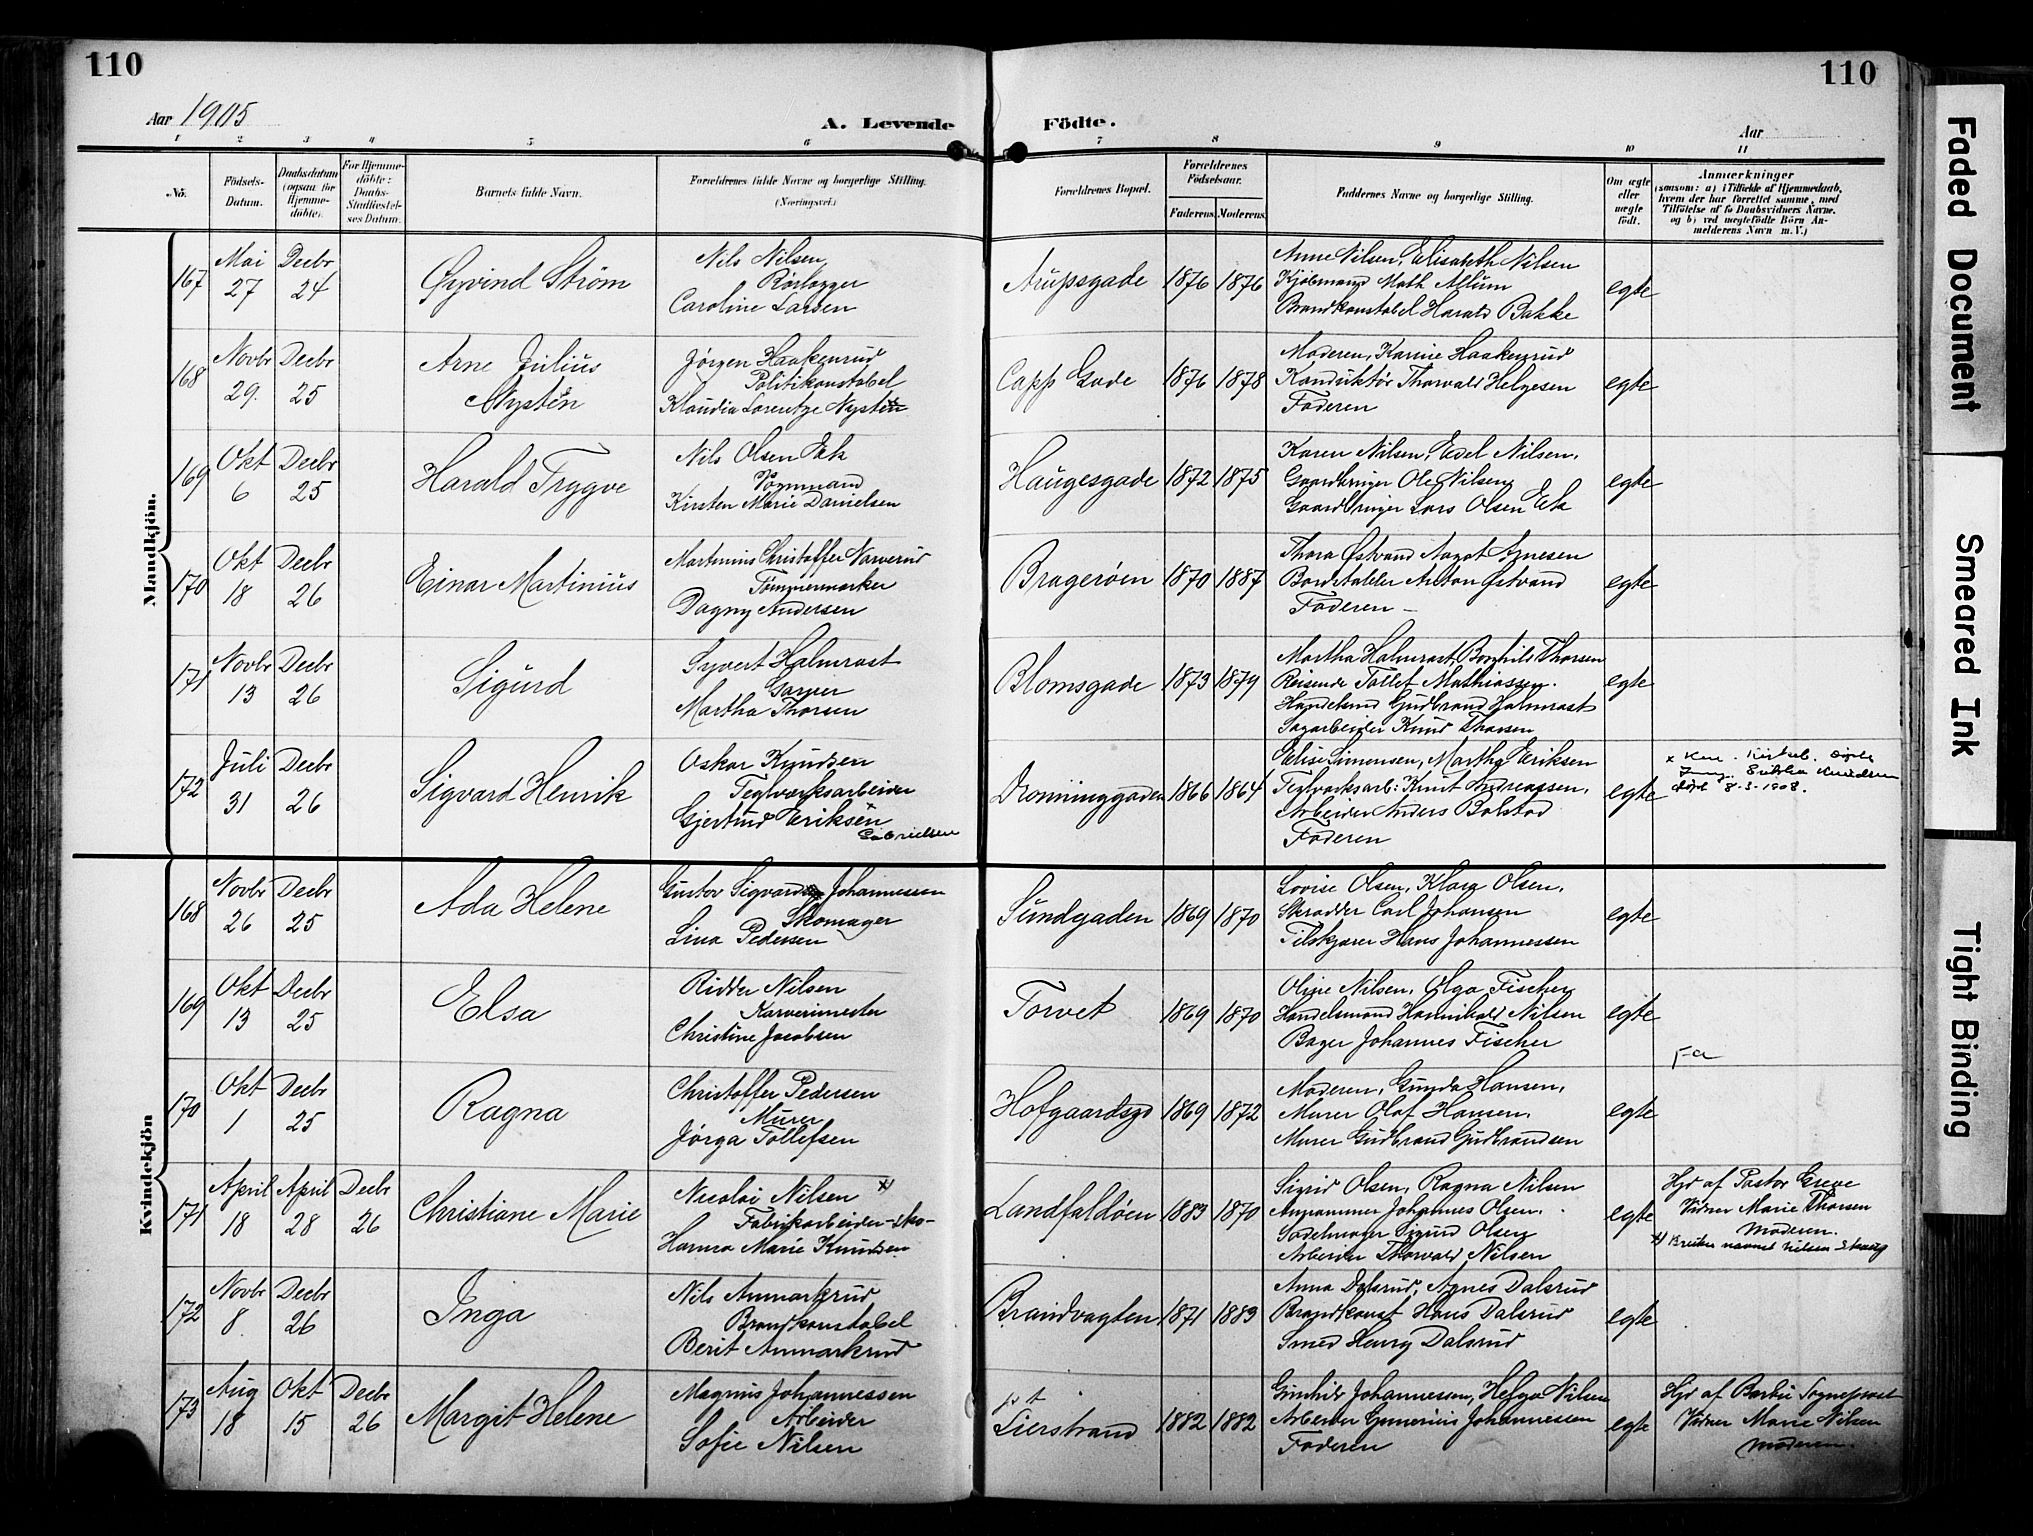 110
110
Aar 1905
A. Levende Födte.
Aar
1 2 3 4 5 6 7 8 9 10 11
No.
Födsels-Datum.
Daabsdatum (ogsaa for Hjemmedöbte).
For Hjemmedöbte: Daabs-Stadfæstelses Datum.
Barnets fulde Navn.
Forældrenes fulde Navne og borgerlige Stilling. (Næringsvei.)
Forældrenes Bopæl.
Forældrenes Födselsaar.
Faderens. Moderens.
Faddernes Navne og borgerlige Stilling.
Om ægte eller uægte födt.
Anmærkninger
(saasom: a) i Tilfælde af Hjemmedaab, hvem der har forrettet samme, med Tilföielse af to Daabsvidners Navne. og b) ved uægtefödte Börn Anmelderens Navn m. V.)
Mandkjön.
167 Mai 27 Decbr 24 Øyvind Ström
Nils Nilsen
Rörlægger
Caroline Larsen
Arupsgade 1876 1876
Anne Nilsen, Elisabeth Nilsen
Kjöbmand Math Allum
Brandkonstabel Harald Bakke
egte
168 Novbr 29. Decbr 25 Arne Julius Nystén
Jörgen Haakenrud
Politikonstabel
Klaudia Lorentze Nystén
Capp Gade 1876 1878
Moderen, Karine Haakenrud
Konduktör Thorvald Helgesen
Faderen
egte
169 Okt 6 Decbr 25 Harald Trygve
Nils Olsen Eek
Kirsten Marie Danielsen
Haugesgade 1872 1875
Karen Nilsen, Edel Nilsen,
Gaardbruger Ole Nilsen
Gaardbruger Lars Olsen Eek
egte
170 Okt 18 Decbr 26 Einar Martinius
Martinius Christoffer Narverud
Tömmermerker
Dagny Andersen
Brageröen 1870 1887
Thora Østvand Aagot Agnesen
Bordstabler Anton Østvand
Faderen
egte
171 Novbr 13 Decbr 26 Sigurd
Syvert Halmrast
Garver
Martha Thorsen
Blomsgade 1873 1879
Martha Halmrast, Borghild Thorsen
Reisende Tollef Mathiassen.
Handelsmd Gudbrand Halmrast
Sagarbeider Knud Thorsen
egte
172 Juli 31 Decbr 26 Sigvard Henrik
Oskar Knudsen
Teglværksarbeider
Gjertrud Eriksen x
Gabrielsen
Dronninggaden 1866 1864
Elise Simonsen, Martha Eriksen
Teglværksarb: Knut Andreassen,
Arbeider Anders Bolstad
Faderen
egte
Knudsen
död 8-3-1908.
Kvindekjön
168 Novbr 26 Decbr 25 Ada Helene
Gustav Sigvard Johannessen
Skomager
Lina Pedersen
Sundgaden 1869 1870
Lovise Olsen, Klara Olsen,
Skrædder Carl Johansen
Tilskjærer Hans Johannessen
egte
169 Okt 13 Decbr 25 Elsa
Ridder Nilsen
Garverimester
Christine Jacobsen
Torvet 1869 1870
Oline Nilsen, Olga Fischer
Handelsmand Hannibald Nilsen
Bager Johannes Fischer
egte
170 Okt 1 Decbr 25 Ragna
Christoffer Pedersen
Murer
Jørga Tollefsen
Hofgaardsgd 1869 1872
Moderen, Gunda Hansen,
Murer Olaf Hansen,
Murer Gudbrand Gudbrandsen
egte
171 April 18 April 28 Decbr 26 Christiane Marie
Nicolai Nilsen x)
Fabrikarbeider-sko-
Hanna Marie Knudsen
Landfaldöen 1883 1870
Sigrid Olsen, Ragna Nilsen
Johannes Olsen,
Sadelmager Sigurd Olsen
Arbeider Thorvald Nilsen
egte
Hjd af Pastor Greve
Vidner Marie Thorsen
Moderen.
x) Bruker navnet Nilsen-Skaug
172 Novbr 8. Decbr 26 Inga
Nils Anmarkrud
Brandkonstabel
Berit Anmarkrud
Brandvagten 1871 1883
Anna Dalsrud, Agnes Dalsrud
Brandkonst Hans Dalsrud
Smed Henry Dalsrud
egte
173 Aug 18 Okt 15 Decbr 26 Margit Helene
Magnus Johannessen
Arbeider
Sofie Nilsen
p t Lierstrand 1882 1882
Gunhild Johannessen, Helga Nilsen
Arbeider Gunerius Johannessen
Faderen
egte
Hjd af Barbu Sogneprest
Vidner Marie Nilsen
Moderen.
Faded Document
Smeared Ink
Tight Binding